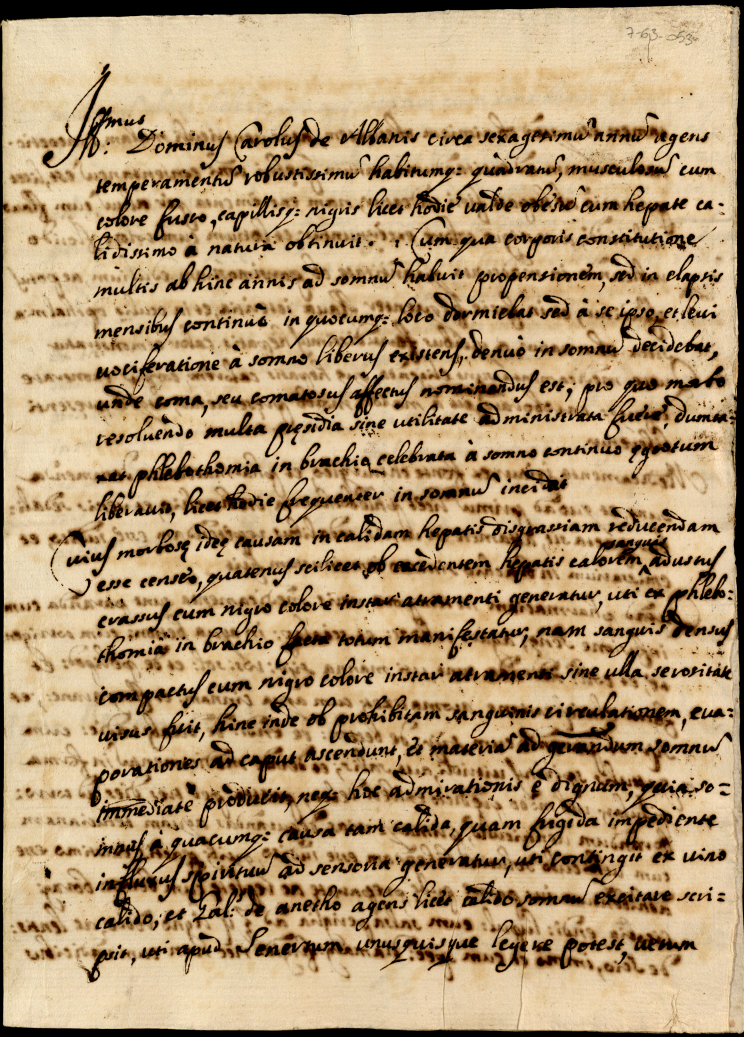 7-63-053r
Illmus: Dominus Carolus de Albanis circa sexagesimũ annũ agens
temperamentũ robustissimũ habitumq: quadratũ, musculosũ cum
colore fusco, capillisq: nigris licet hodie valde obesũ cum hepate ca-
lidissimo à natura obtinuit. Cum qua corporis constitutione
multis ab hinc annis ad somnũ habuit propensionem, sed in elapsis
mensibus continuò in quocumq: loco dormiebat sed à se ipso, et levi
vociferatione à somno liberus existens, denuò in somnũ decidebat,
unde coma, seu comatosus affectus nominandus est; pro quo morbo
resoluendo multa pręsidia sine utilitate administrata fuere, dumta-
xat phlebothomia in brachio celebrata à somno continuo ęgrotum
liberavit, licet hodie frequenter in somnũ incidat
Cuius morbosę ideę causam in calidam hepatis disgrassiam reducendam
esse censeo, quatenus scilicet ob excedentem hepatis calorem sanguis adustus
crassus cum nigro colore instar atramenti generatur, uti ex phlebo-
thomia in brachio facta totum manifestatur; nam sanguis densus
compactus cum nigro colore instar atramenti sine ulla serositate
visus fuit, hinc inde ob prohibitam sanguinis circulationem, eva-
porationes ad caput ascendunt, et materiã ad gerandum somnũ
immediatè producit, neq: hoc admirationis è dignum, quia so-
mnus à quacumq: causa tam calida, quam frigida impediente
influxus spirituũ ad sensoria generatur, uti contingit ex vino
calido, et Gal: de anetho agens licet calido somnũ excitare scri-
psit, uti apud Senertum unusquisque legere potest, verum